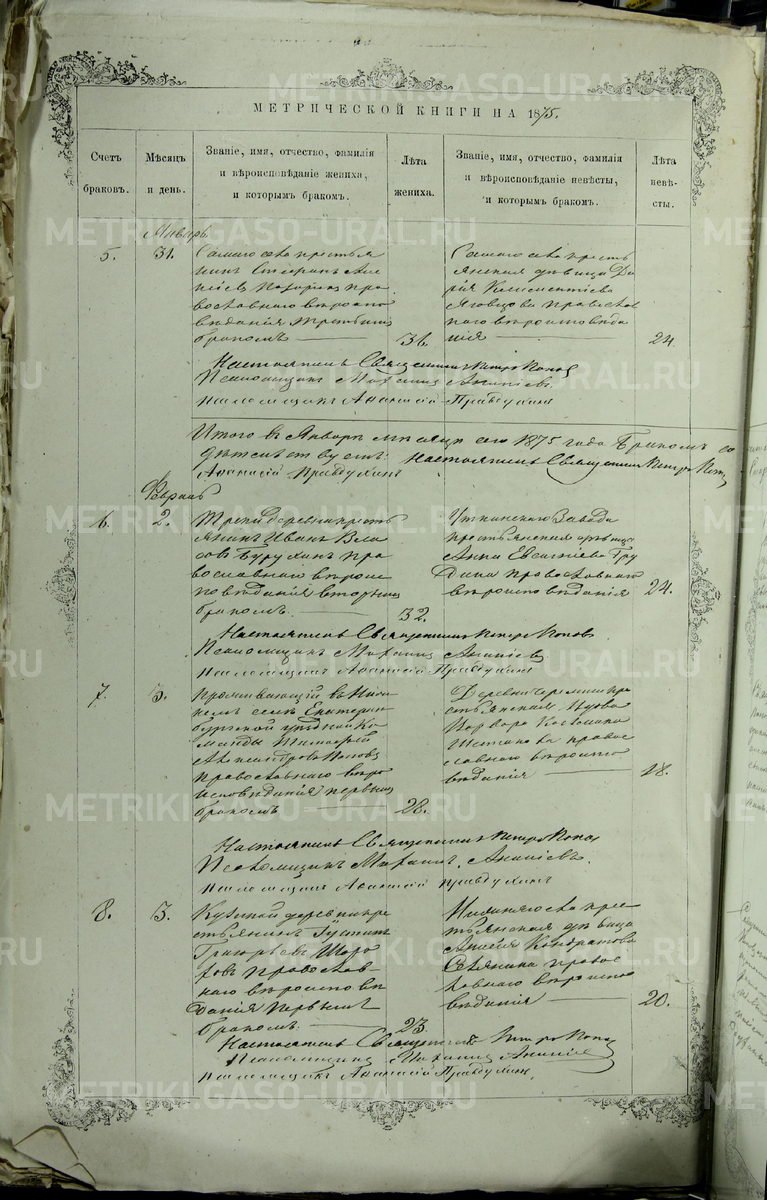 МЕТРИЧЕСКОЙ КНИГИ НА 1875.
Счетъ браковъ.
Мѣсяцъ и день.
Званіе, имя, отчество, фамилія
и вѣроисповѣданіе жениха,
и которымъ бракомъ.
Лѣта жениха.
Званіе, имя, отчество, фамилія
и вѣроисповѣданіе невѣсты,
и которымъ бракомъ.
Лѣта невѣ-
сты.
Январь
5.
31.
Самаго села крестья
нинъ Стефанъ
пра
вославнаго вѣроиспо
вѣданія третьимъ
бракомъ
31.
Самаго села кресть
янская дѣвица Да
рія Климентіева
православ
наго вѣроисповѣда
нія
24.
Настоятель Священникъ Петръ Поповъ
Псаломщикъ Михаилъ Ананіевъ
Псаломщикъ Аѳанасій Правдухинъ
Итого въ Январѣ мѣсяцѣ сего 1875 года бракомъ со
Настоятель Священникъ Петръ Поповъ
Аѳанасій Правдухинъ
Февраль
6.
2.
деревни кресть
янинъ Иванъ Вла
совъ Бурухинъ пра
вославнаго вѣроис
повѣданія вторымъ
бракомъ
32.
Уткинскаго Завода
крестьянская дѣвица
Анна Евсигніева Гру
дина православнаго
вѣроисповѣданія
24.
Настоятель Священникъ Петръ Поповъ
Псаломщикъ Михаилъ Ананіевъ
Псаломщикъ Аѳанасій Правдухинъ
7.
3.
Проживающій въ
селѣ Екатерин
бургской уѣздной Ко
манды Тимофей
Александровъ Поповъ
православнаго вѣро
исповѣданія первымъ
бракомъ
28.
Деревни кре
стьянская вдова
Варвара Козмина
правос
лавнаго вѣроиспо
вѣданія
18.
Настоятель Священникъ Петръ Поповъ
Псаломщикъ Михаилъ Ананіевъ.
Псаломщикъ Аѳанасій Правдухинъ
8.
3.
деревни кре
стьянинъ Іустинъ
Григорьевъ
православ-
наго вѣроисповѣ
данія первымъ
бракомъ
23.
села крес
тьянская дѣвица
Кондратова
правос
лавнаго вѣроиспо
вѣданія
20.
Настоятель Священникъ Петръ Поповъ
Псаломщикъ Михаилъ Ананіевъ
Псаломщикъ Аѳанасій Правдухинъ
METRIKI.GASO-URAL.RU